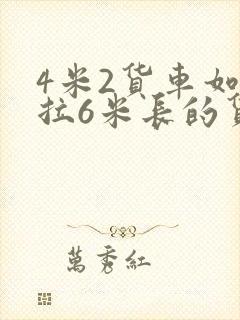 4米2貨車如
拉6米長的
萬秀紅